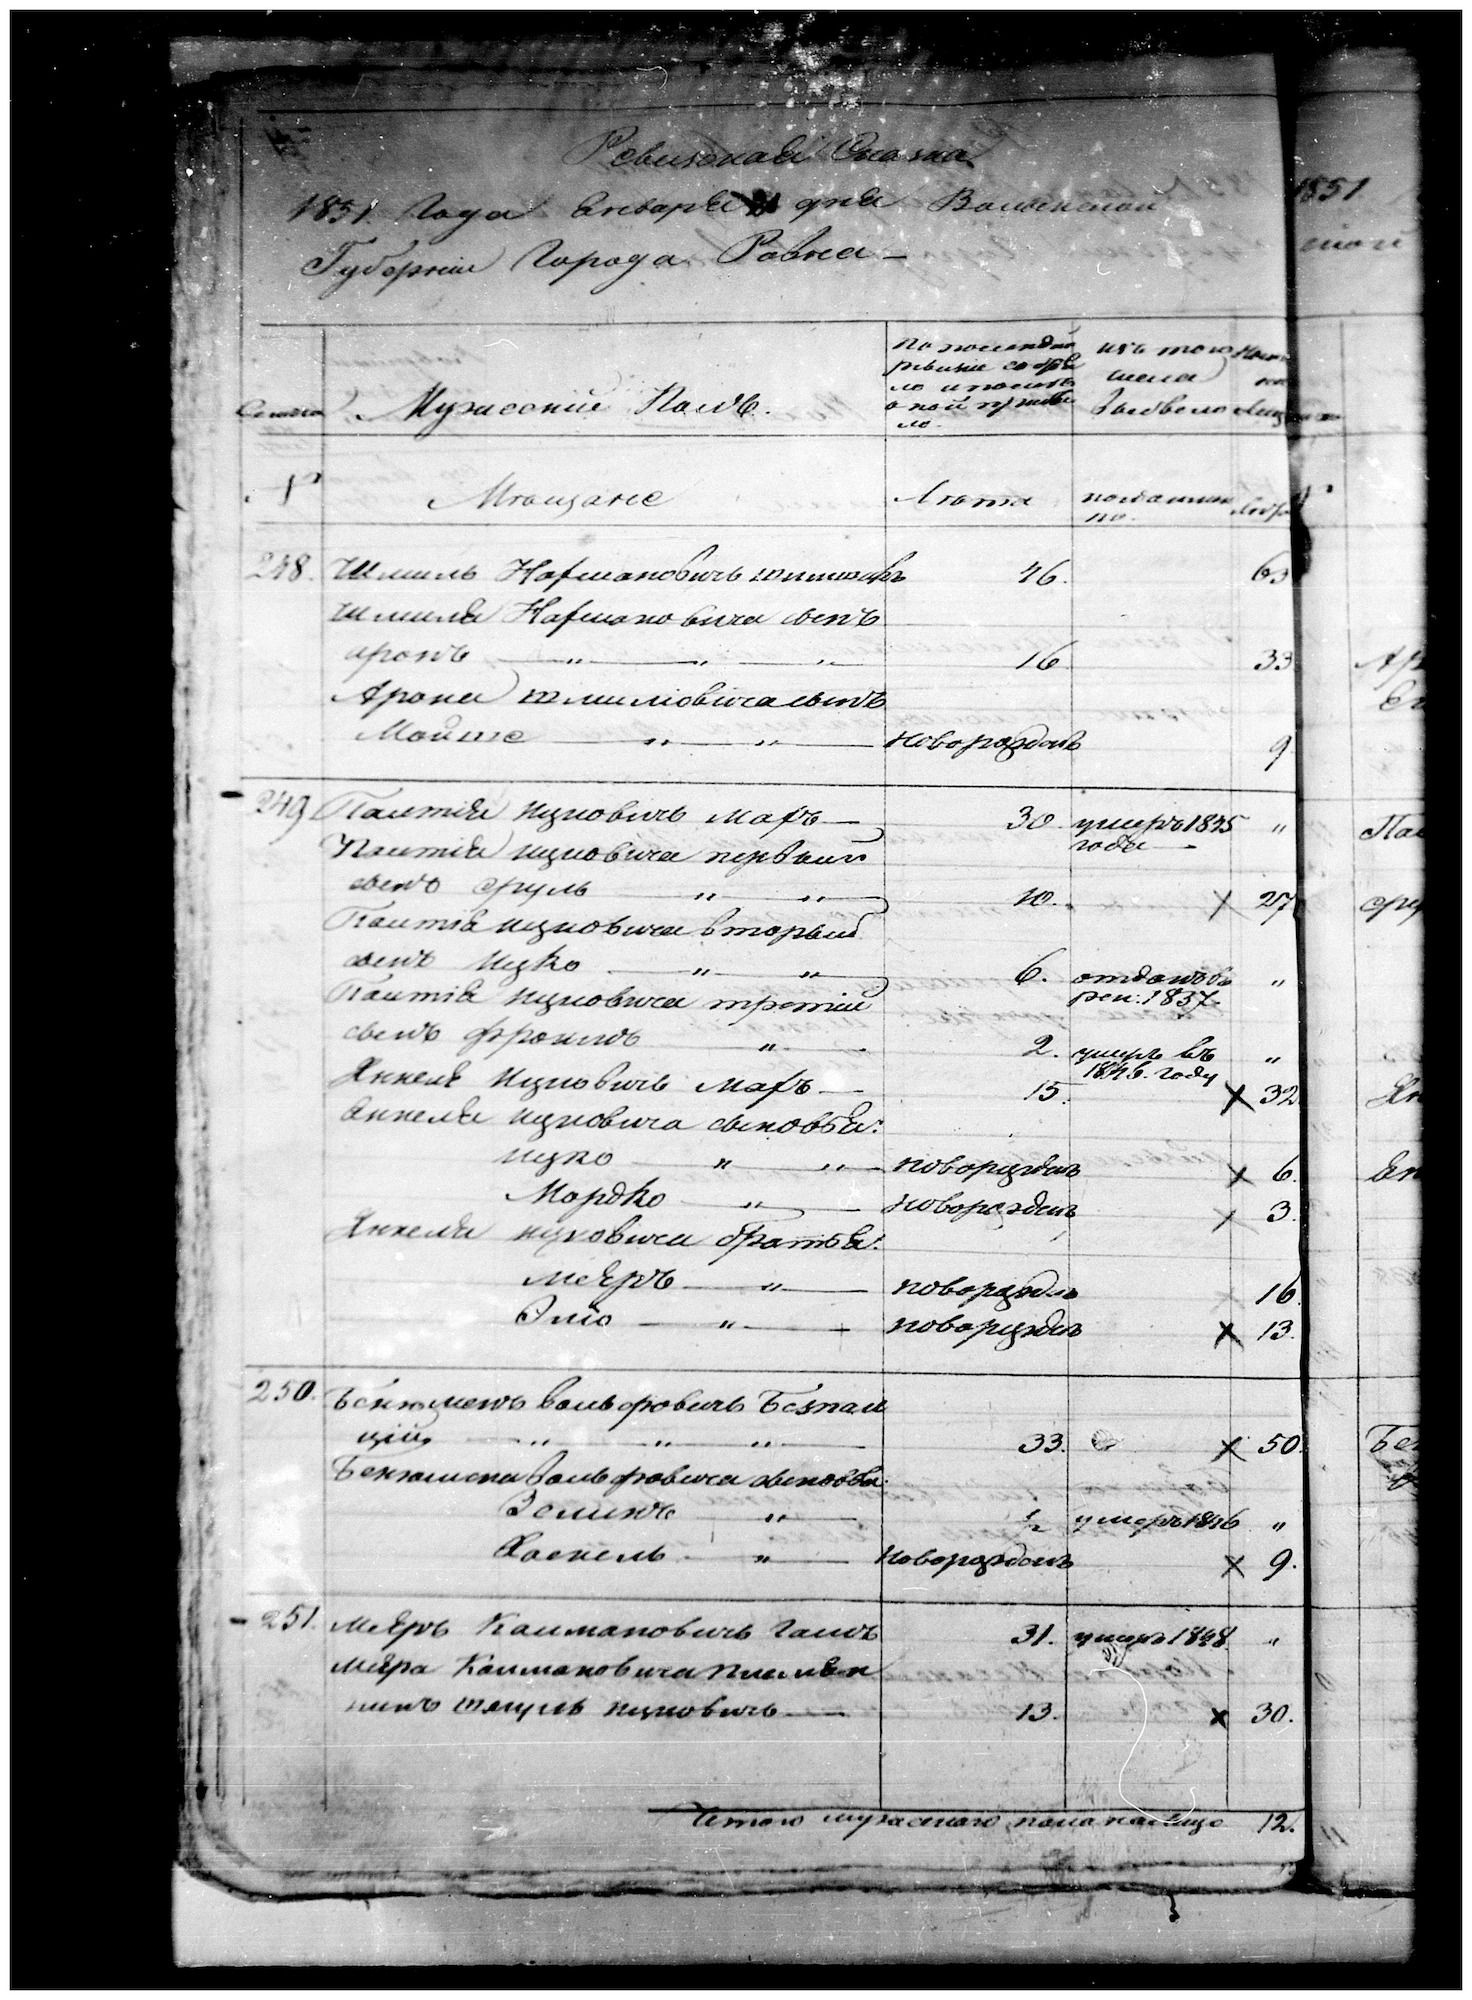 Ревизская Сказка
1851 Года Января дня Волынской
Губерніи Города Ровна
Семьи
Мужескій Полъ.
По последней ревизіи состо
ло и после
оной прибы
ло.
изъ того
выбыло
№
Мещане
Лета
когда имен
но.
Лета
248. Шмиль Нахмановичъ 46. 63
Шмиля Нахмановича сынъ
аронъ — " — " — " — 16 33
Арона Шмиліовича сынъ
Мойше — " — " — новорожденъ 9
249 Палтія Ицковичъ Махъ — 30. умеръ 1845 "
года —
Палтія Ицковича первый
сынъ Сруль — " — " — 10. х 27
Палтія Ицковича вторый
сынъ Ицко — " — " 6. отданъ въ "
рек: 1837.
Палтія Ицковича третій
сынъ Фроимъ " 2. умеръ въ "
1846. году
Янкель Ицковичъ Махъ — 15. х 32
Янкеля Ицковича сыновья:
Ицко — " — " — новорожденъ х 6.
Мордко — " — новорожденъ х 3.
Янкеля Ицковича братья:
Меяръ — " — новорожденъ х 16.
Эліо — " — новорожденъ х 13.
250. Беніоменъ Вольфовичъ Безпал
цій — " — " — " — 33. х 50.
Беніомена Вольфовича сыновья.
Зеликъ — " — 1/2 умеръ 1846 "
Хаскель — " — новорожденъ х 9.
251. Меяръ Калмановичъ Галъ 31. умеръ 1848 "
Меяра Калмановича племян
никъ Шмуль Ицковичъ — 13. х 30.
Итого мужескаго пола налицо 12.
1851